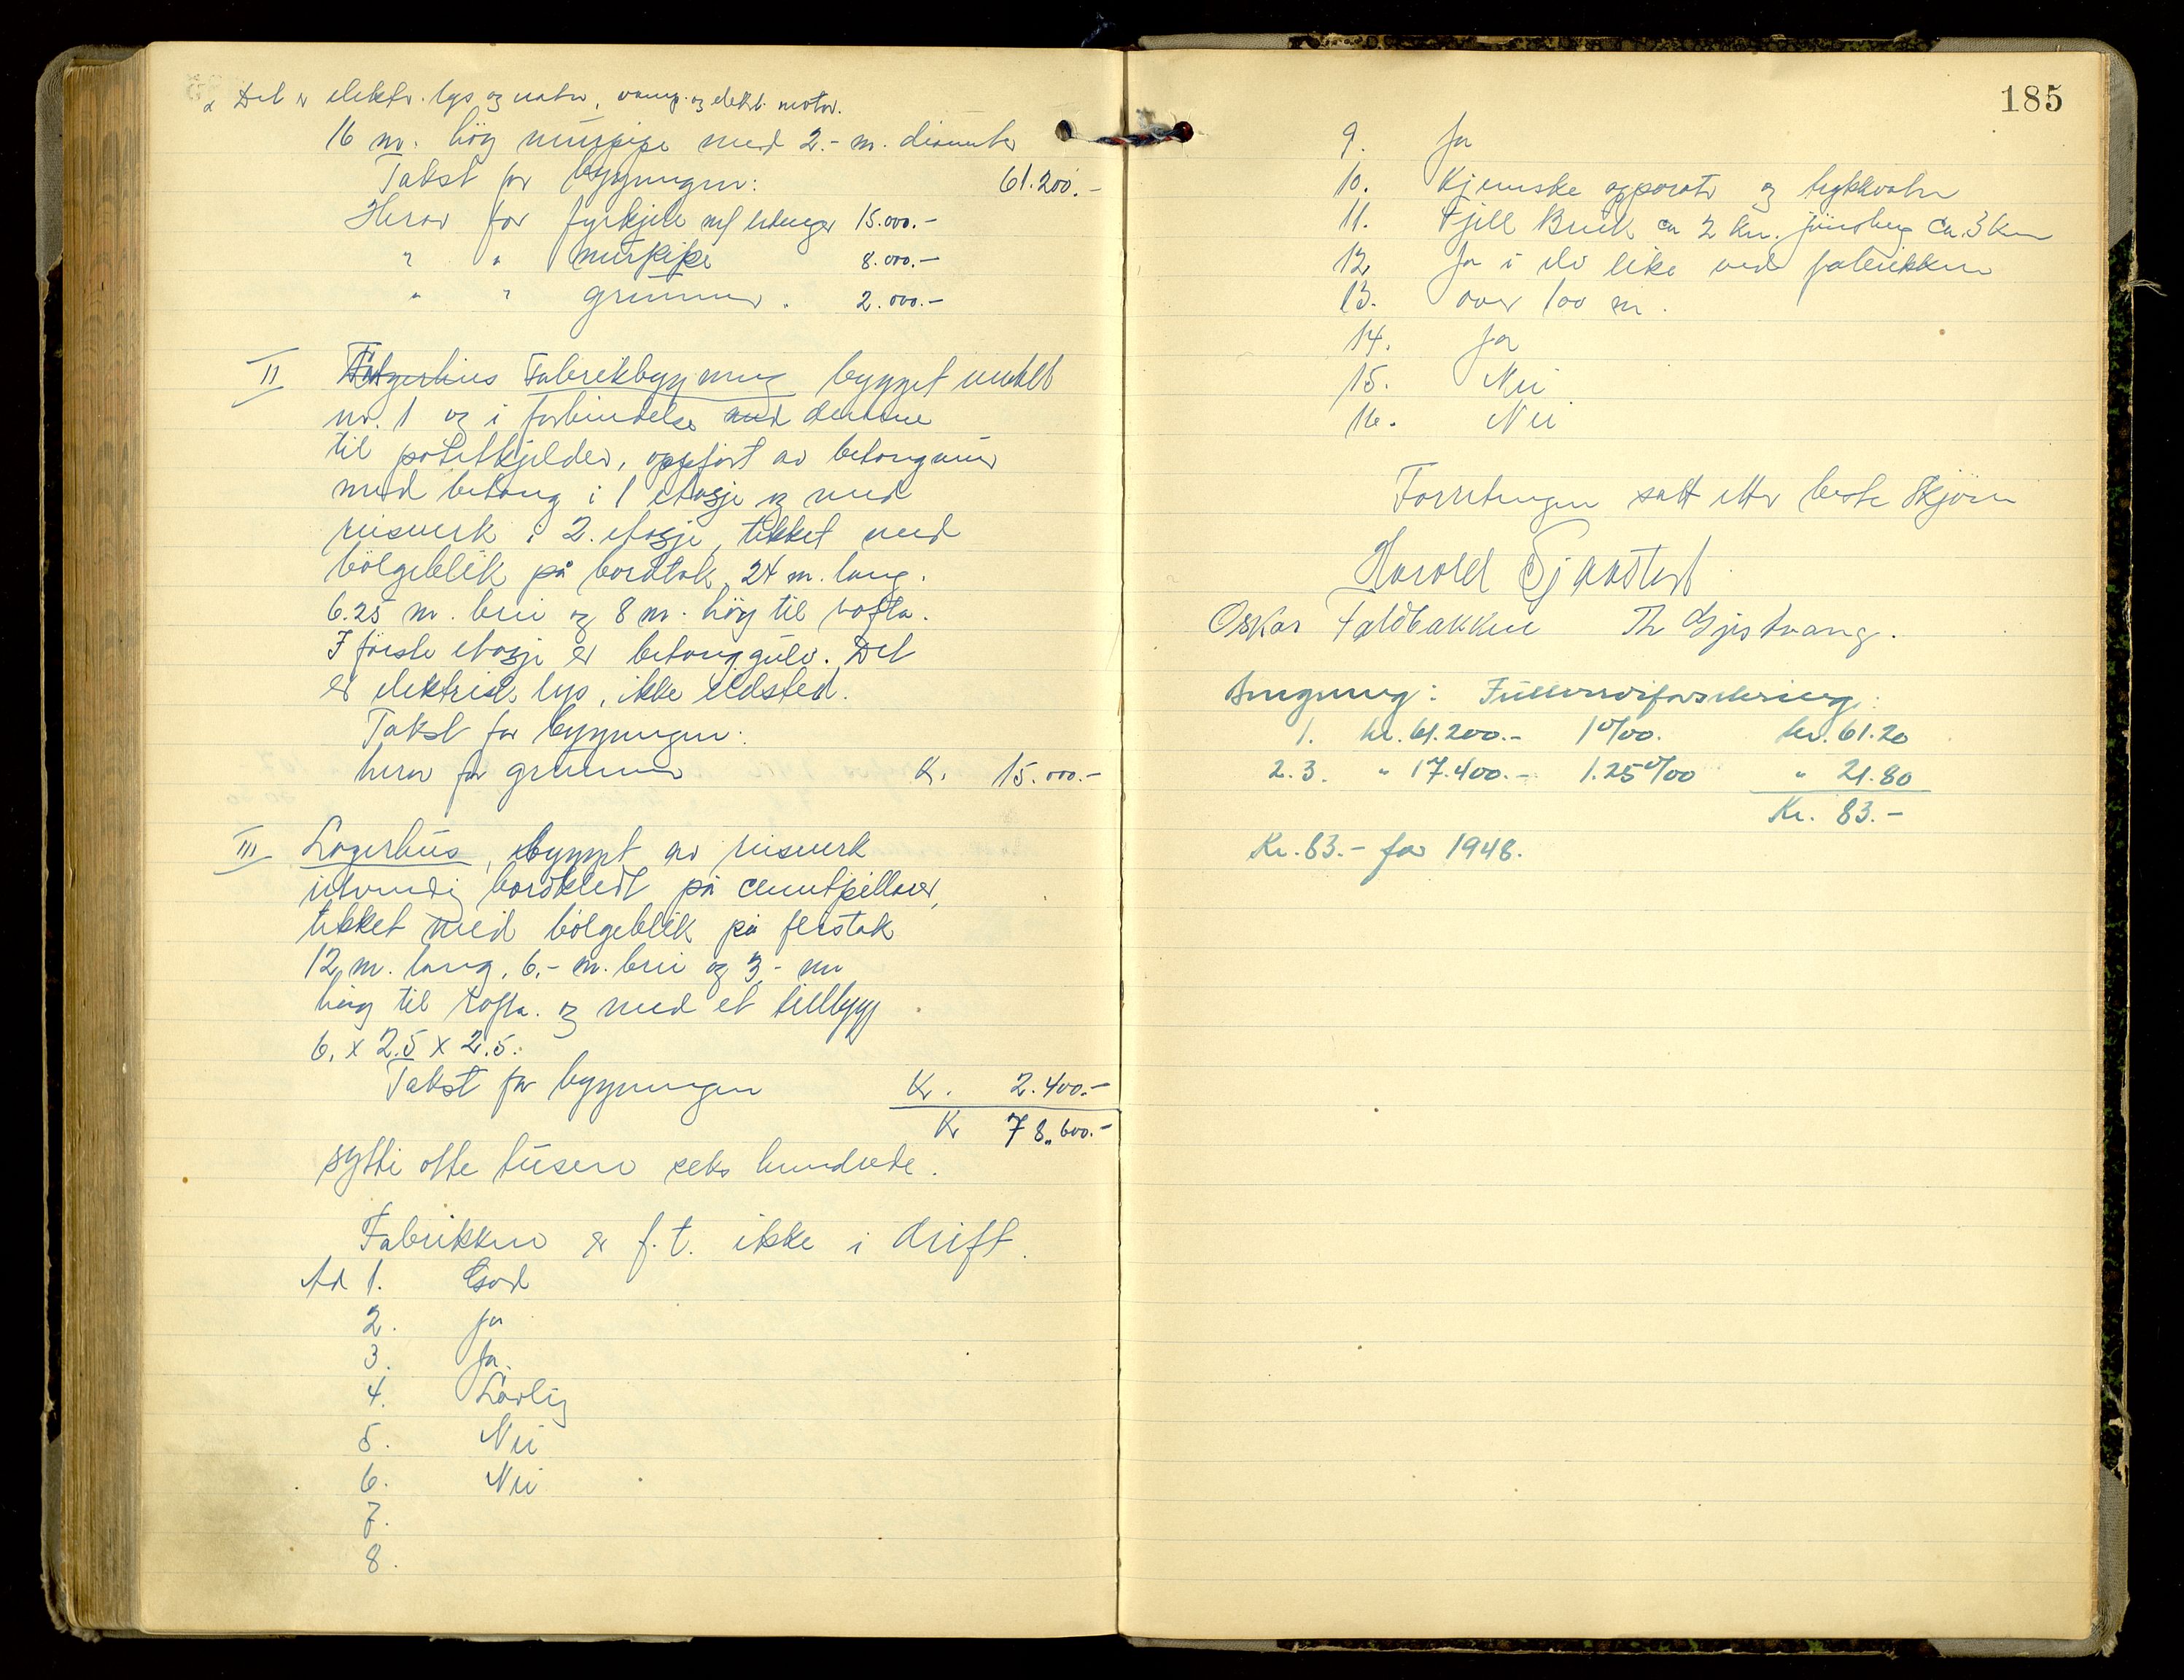 Det er elektr. lys og vatn, vamp. og elekt. motor.
16 m. hög murpipe med 2.- m. diameter
Takst for bygningen: 61.200.-
Herav for fyrkjele m/ 15.000.-
" " murpipe 8.000.-
" " grunnmur. 2.000.-
II Lagerhus Fabrikbygning bygget inntil
nr. 1 og i forbindelse med denne
til potetkjelder, oppfört av betongmur
med betong i 1 etasje og med
reisverk i 2. etasje, tekket med
bölgeblik på bordtak, 24 m. lang.
6.25 m. brei og 8 m. hög til rofta.
I förste etasje er betonggulv. Det
er elektrisk lys, ikke eldsted.
Takst for bygningen:
herav for grunnmur Kr. 15.000.-
III Lagerhus, bygget av reisverk
utvendig bordkledt på cementpillarer,
tekket med bölgeblik på
12 m. lang, 6,- m. brei og 3,- m
hög til rofta. og med et tillbygg
6. x 2.5 x 2.5.
Takst for bygningen Kr. 2.400.-
Kr 78.600.-
sytti otte tusen seks hundrede.
Fabrikken er f.t. ikke i drift.
Ad 1. God
2. Ja
3. Ja.
4. Lovlig
5. Nei
6. Nei
7.
8.
185
9. Ja
10. Kjemske apparater og trykkvatn
11. Fjell Bruk ca 2 km. Jönsberg ca. 3 km
12. Ja i elv like ved fabrikken
13. over 100 m.
14. Ja
15. Nei
16. Nei
Forretningen satt etter beste skjönn
Harald Sjaastad
Oskar Faldbakken Th Gjestvang.
Bregning: Fullverdiforsikring:
1. kr. 61.200.- 1 0/00. kr. 61.20
2. 3. " 17.400.- 1.25 0/00 " 21.80
Kr. 83.-
Kr. 83.- for 1948.